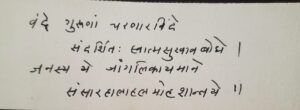 वंदे गुरूणां चरणारविंदे
संदर्शितः स्वात्मसुखावबोधे ।
जनस्य ये जांगलिकायमाने
संसारहालाहलमोहशान्तये ॥